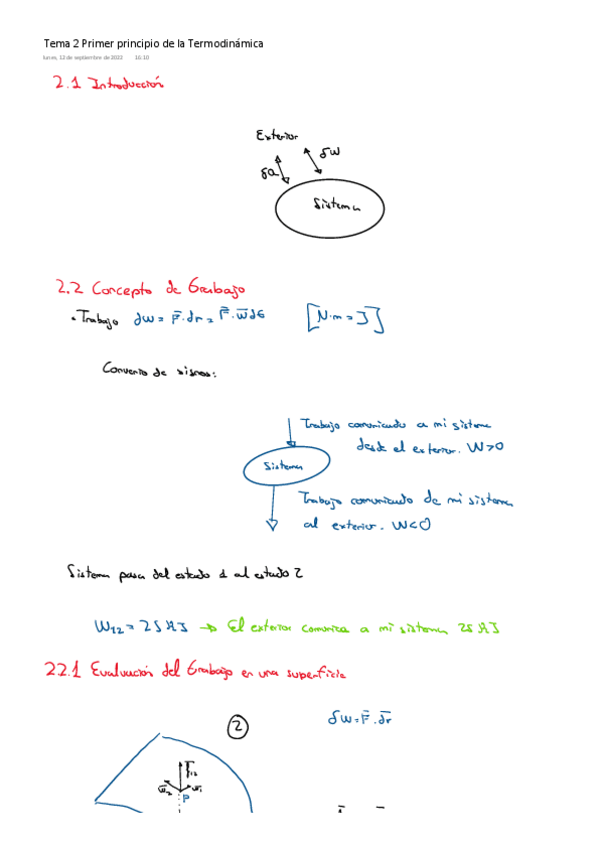 Tema 2 Primer principio de la Termodinámica
lunes, 12 de septiembre de 2022 16:10
2.1 Introducción
Exterior
δQ δW
Sistema
2.2 Concepto de trabajo
• Trabajo dW = F̄·dr = F̄·w̄dt [N·m = J]
Convenio de signos:
Trabajo comunicado a mi sistema
desde el exterior. W>0
Sistema
Trabajo comunicado de mi sistema
al exterior. W<0
Sistema pasa del estado 1 al estado 2
W₁₂ = 25 kJ → El exterior comunica a mi sistema 25 kJ
2.2.1 Evaluación del trabajo en una superficie
2
δW = F̄·dr̄
P